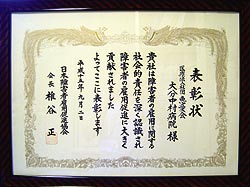 表彰状
医療法人財団 恵愛会
大分中村病院 様
貴社は障害者の雇用に関する
社会的責任を深く認識され
障害者の雇用促進に大きく
貢献されました
よってここに表彰します
平成十五年九月二日
日本障害者雇用促進協会
会長 椎谷 正